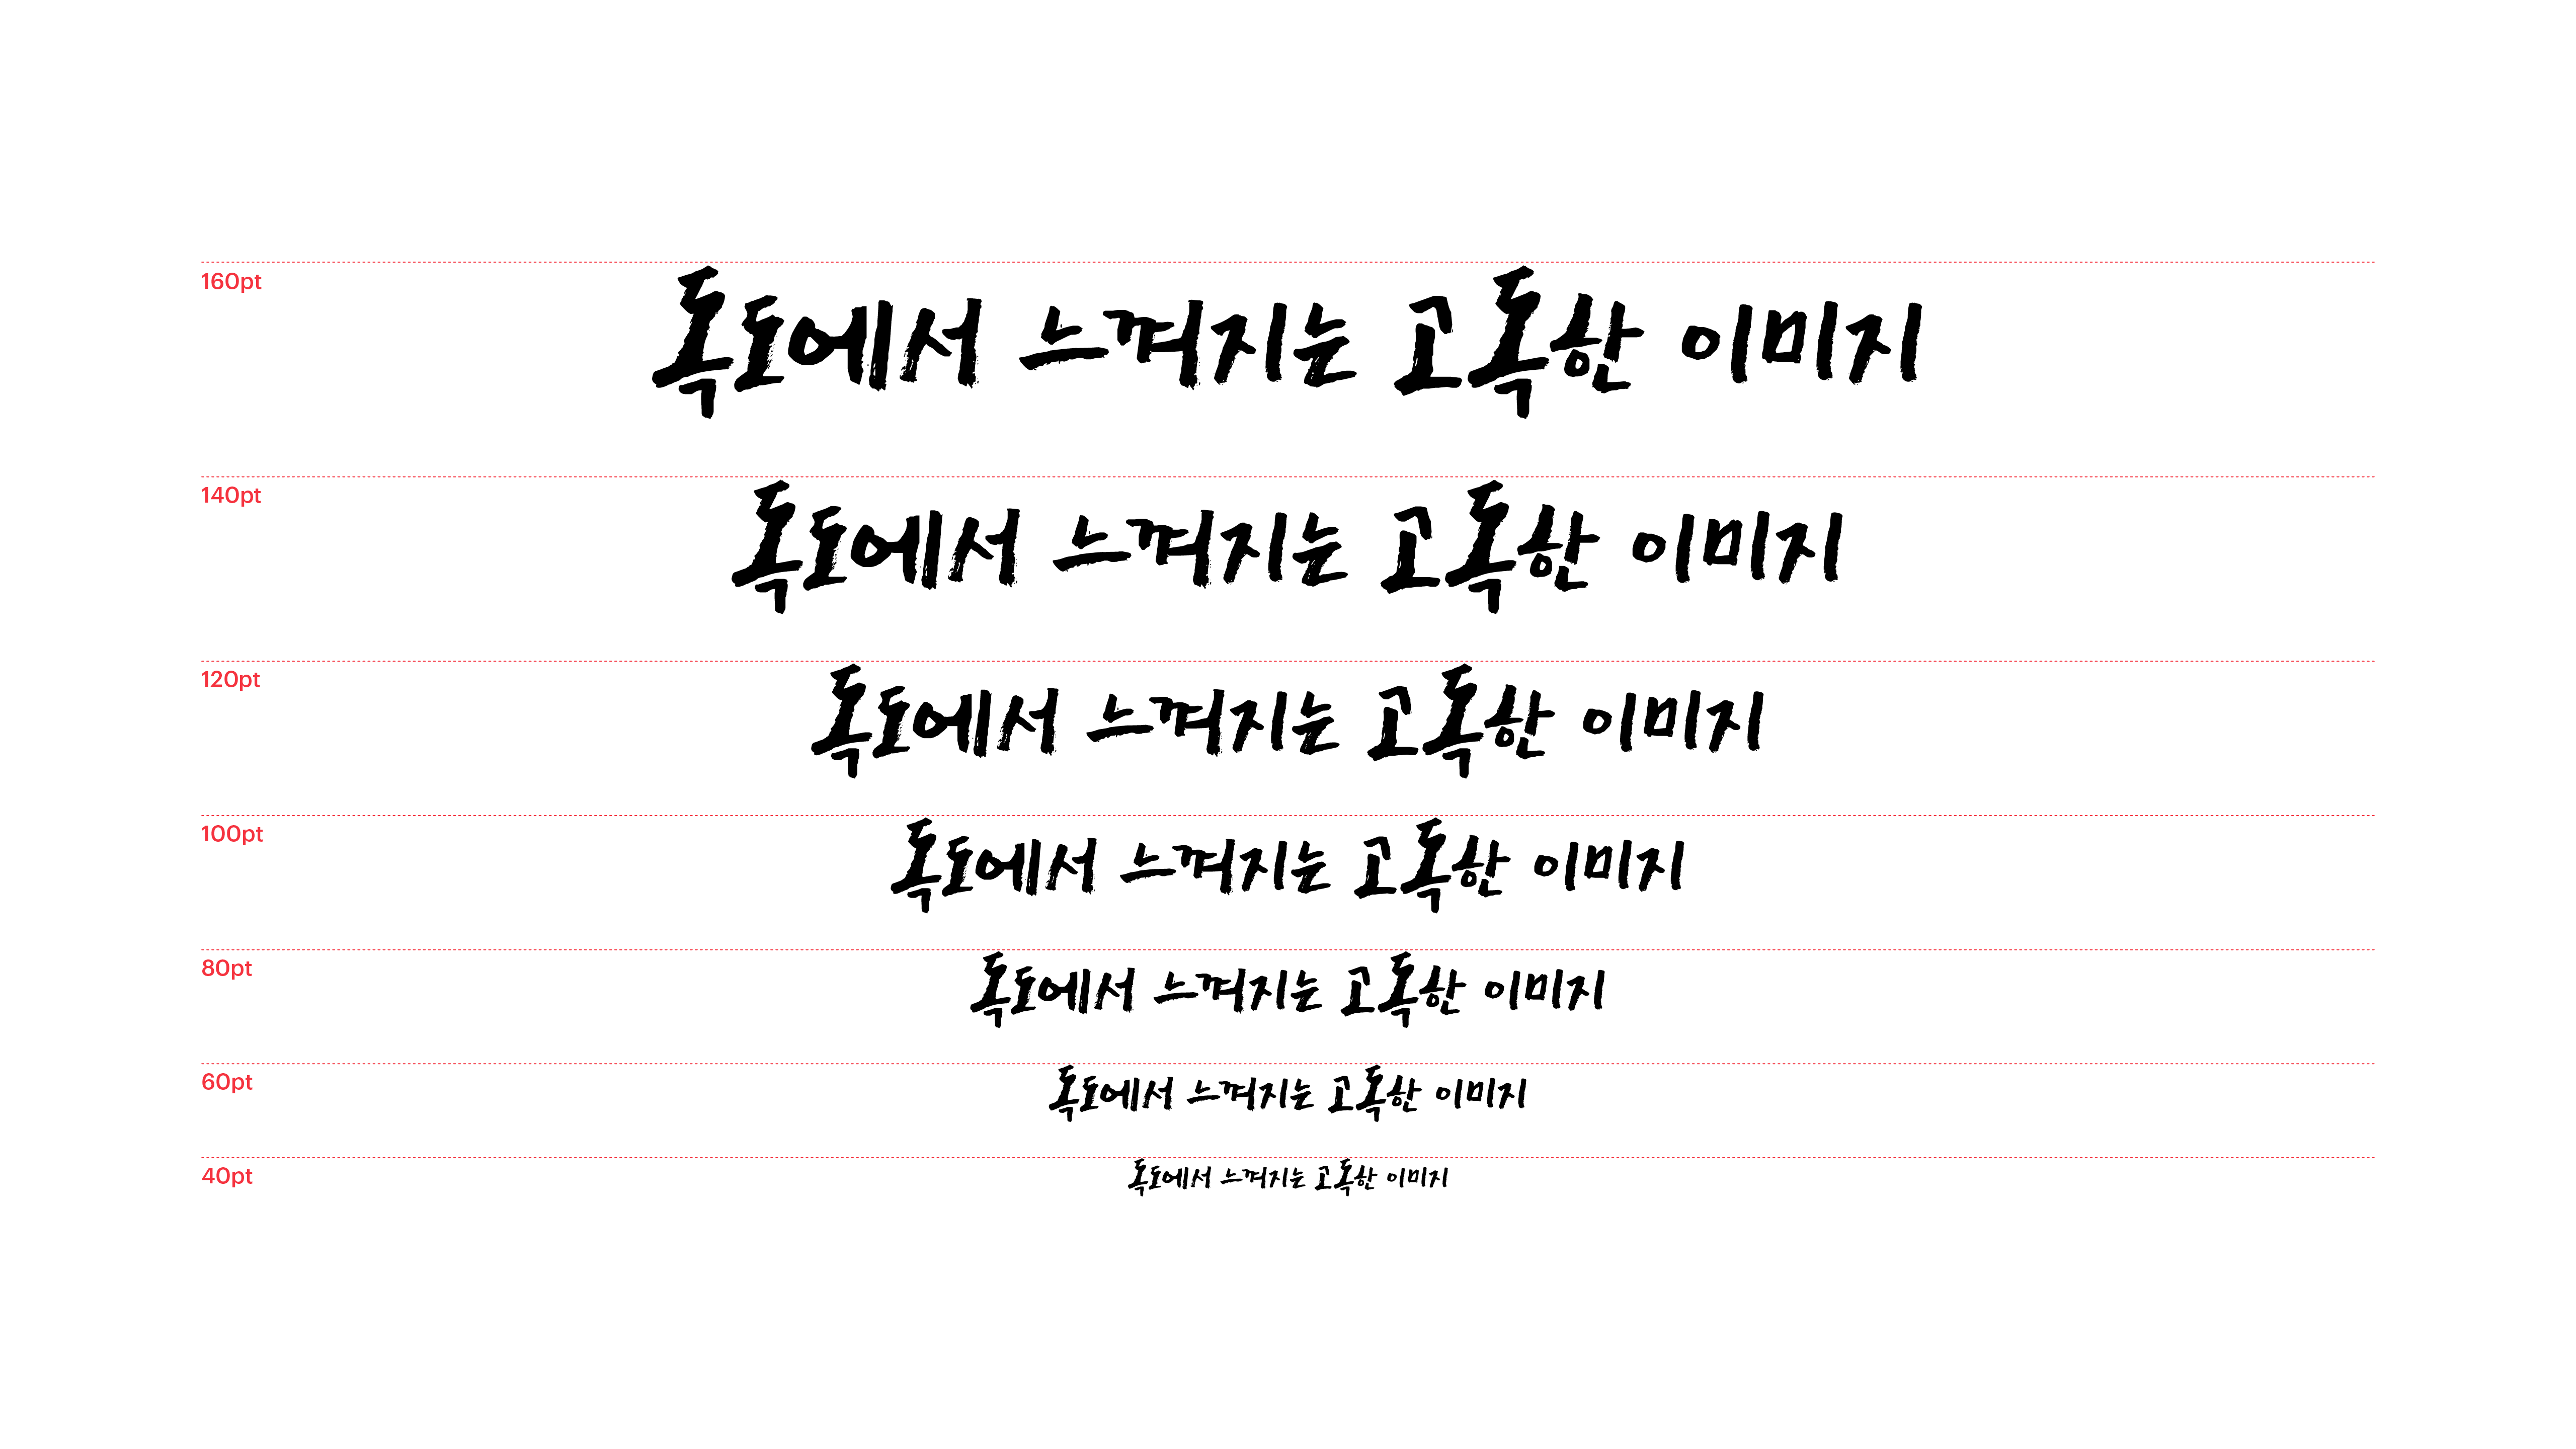 160pt
독도에서 느껴지는 고독한 이미지
140pt
독도에서 느껴지는 고독한 이미지
120pt
독도에서 느껴지는 고독한 이미지
100pt
독도에서 느껴지는 고독한 이미지
80pt
독도에서 느껴지는 고독한 이미지
60pt
독도에서 느껴지는 고독한 이미지
40pt
독도에서 느껴지는 고독한 이미지